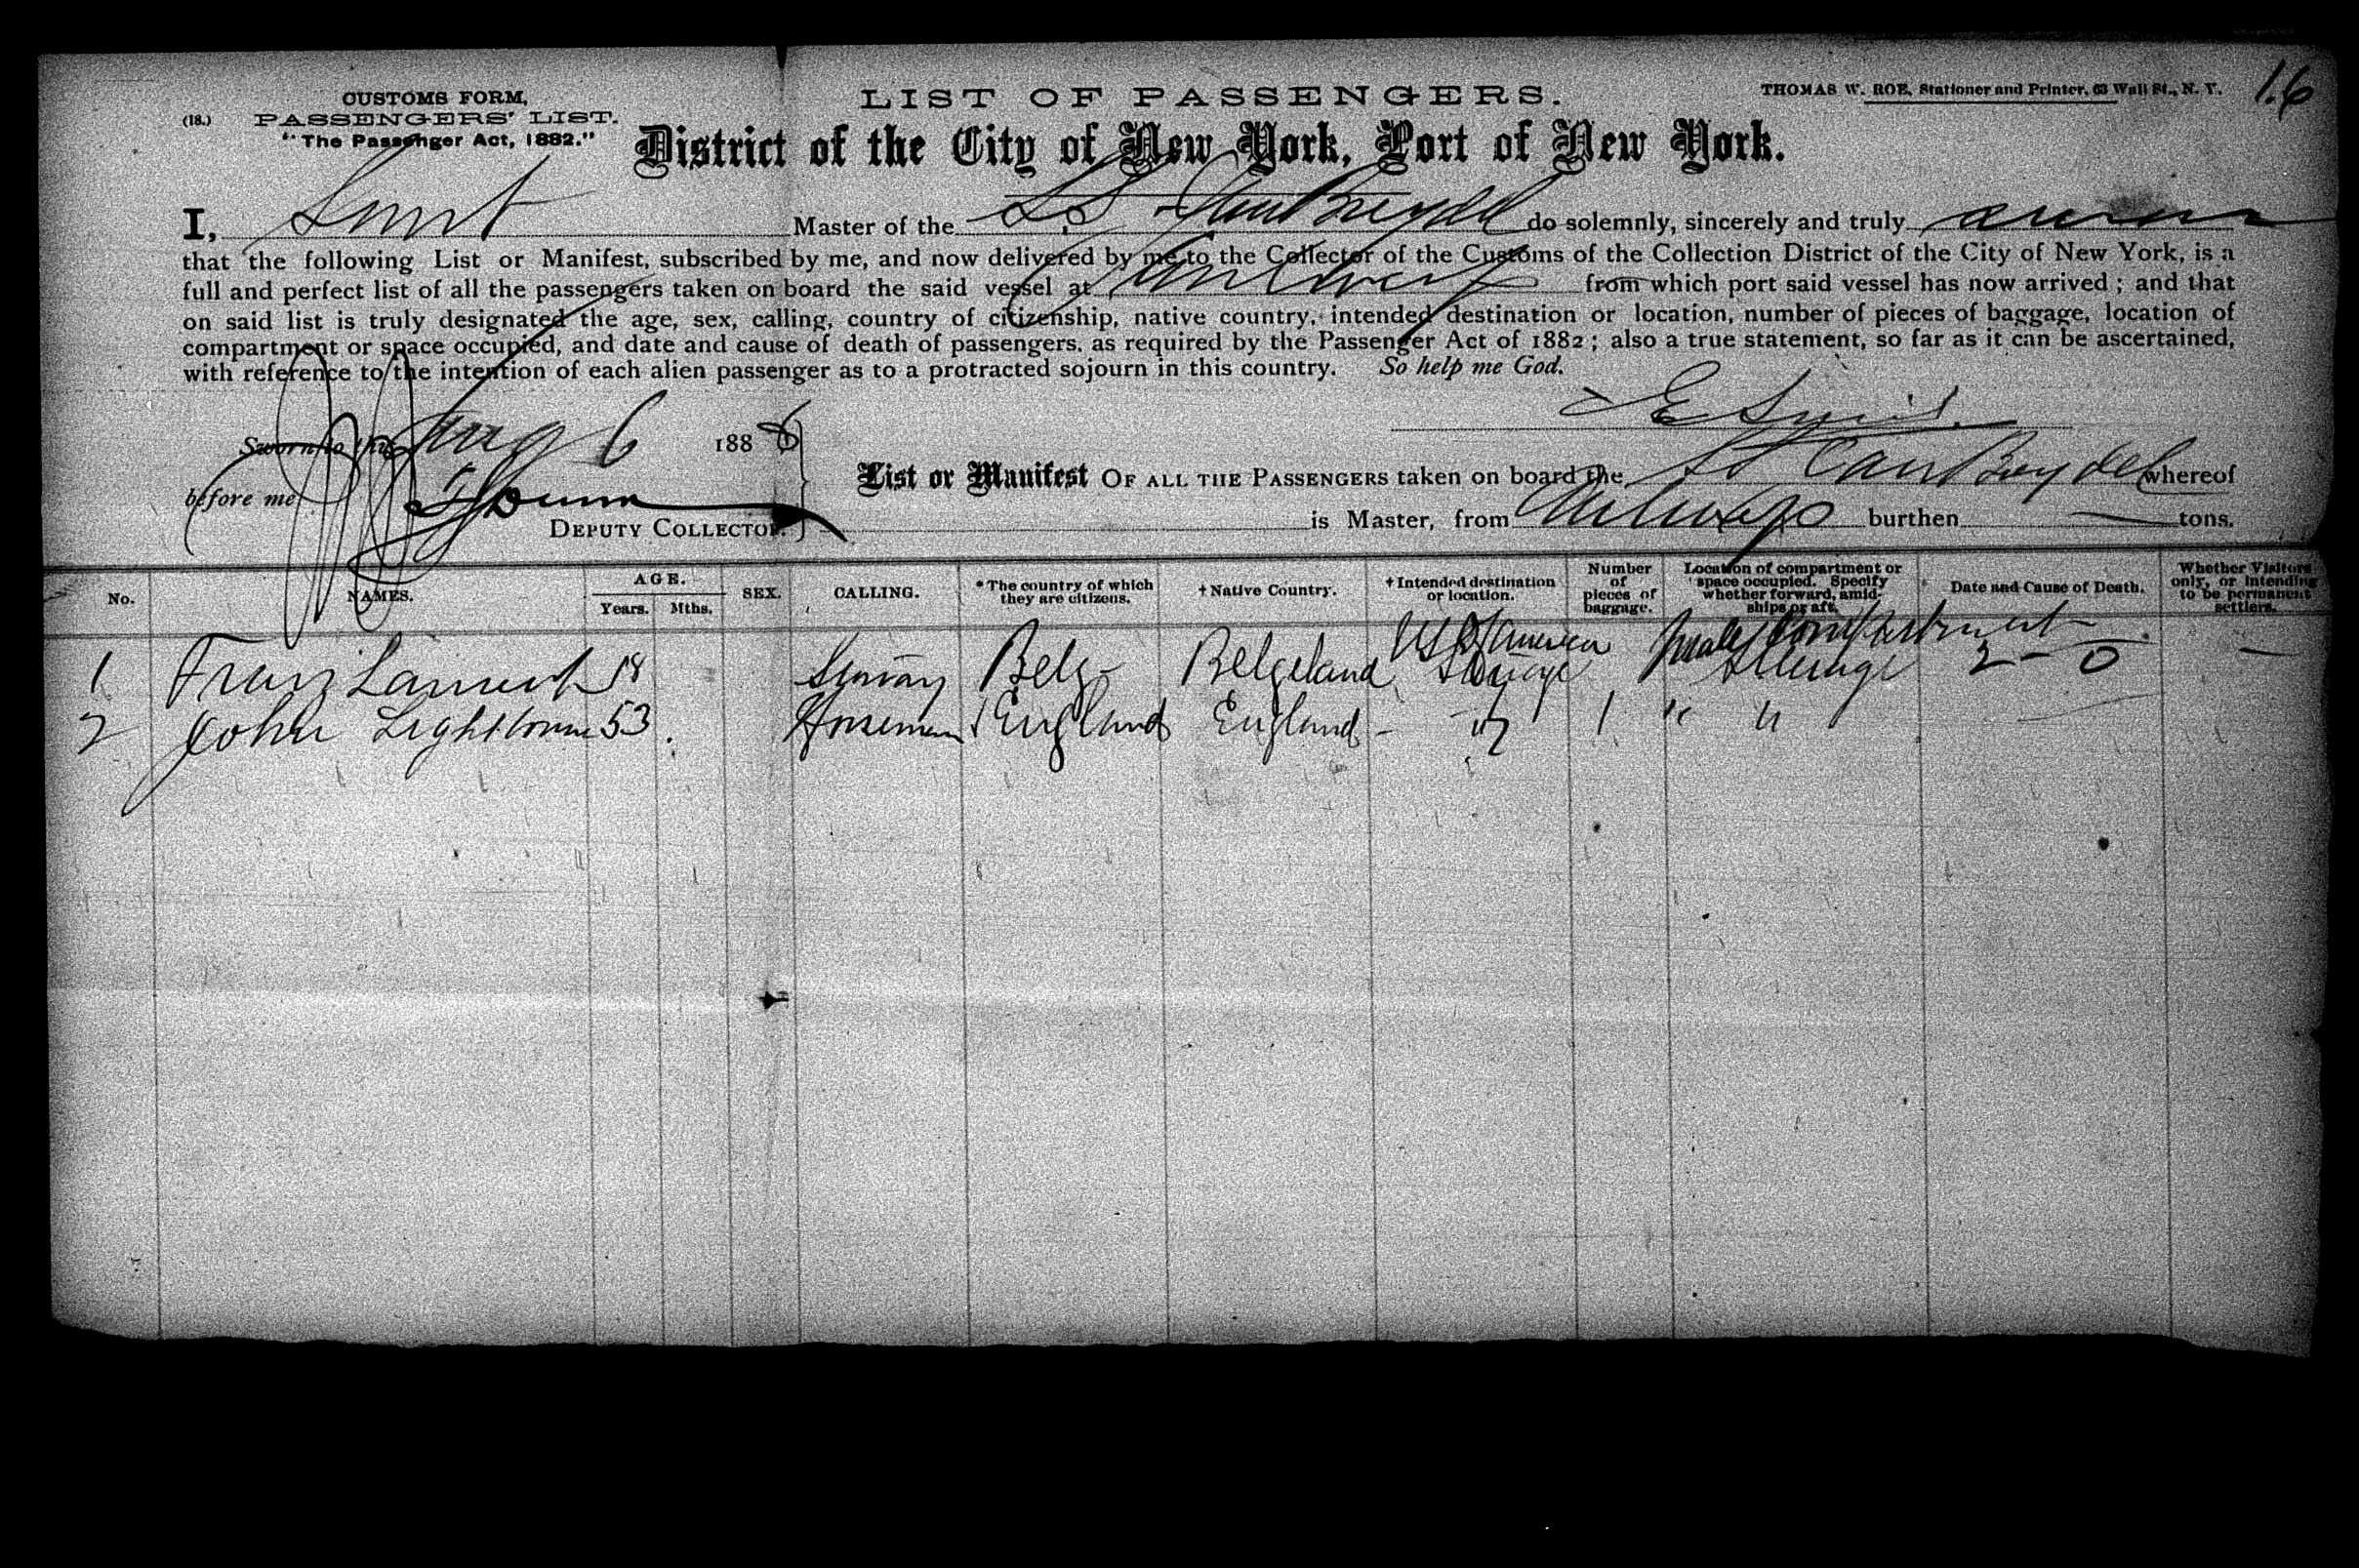 CUSTOMS FORM,
(18.) PASSENGERS' LIST.
"The Passenger Act, 1882."
LIST OF PASSENGERS.
THOMAS W. ROE, Stationer and Printer, 63 Wall St., N. Y.
16
District of the City of New York, Port of New York.
I, Master of the SS do solemnly, sincerely and truly
that the following List or Manifest, subscribed by me, and now delivered by me to the Collector of the Customs of the Collection District of the City of New York, is a
full and perfect list of all the passengers taken on board the said vessel at Antwerp from which port said vessel has now arrived; and that
on said list is truly designated the age, sex, calling, country of citizenship, native country, intended destination or location, number of pieces of baggage, location of
compartment or space occupied, and date and cause of death of passengers, as required by the Passenger Act of 1882; also a true statement, so far as it can be ascertained,
with reference to the intention of each alien passenger as to a protracted sojourn in this country. So help me God.
Sworn to this Aug 6 1888
before me
DEPUTY COLLECTOR.
List or Manifest OF ALL THE PASSENGERS taken on board the whereof
is Master, from Antwerp burthen — tons.
No. NAMES. AGE. Years. Mths. SEX. CALLING. *The country of which they are citizens. †Native Country. †Intended destination or location. Number of pieces of baggage. Location of compartment or space occupied. Specify whether forward, amidships or aft. Date and Cause of Death. Whether Visitors only, or intending to be permanent settlers.
US of America Male Compartment
1 18 Belg- Belgeland Steerage 2 - 0 —
2 John 53 Horseman England England 1 " "